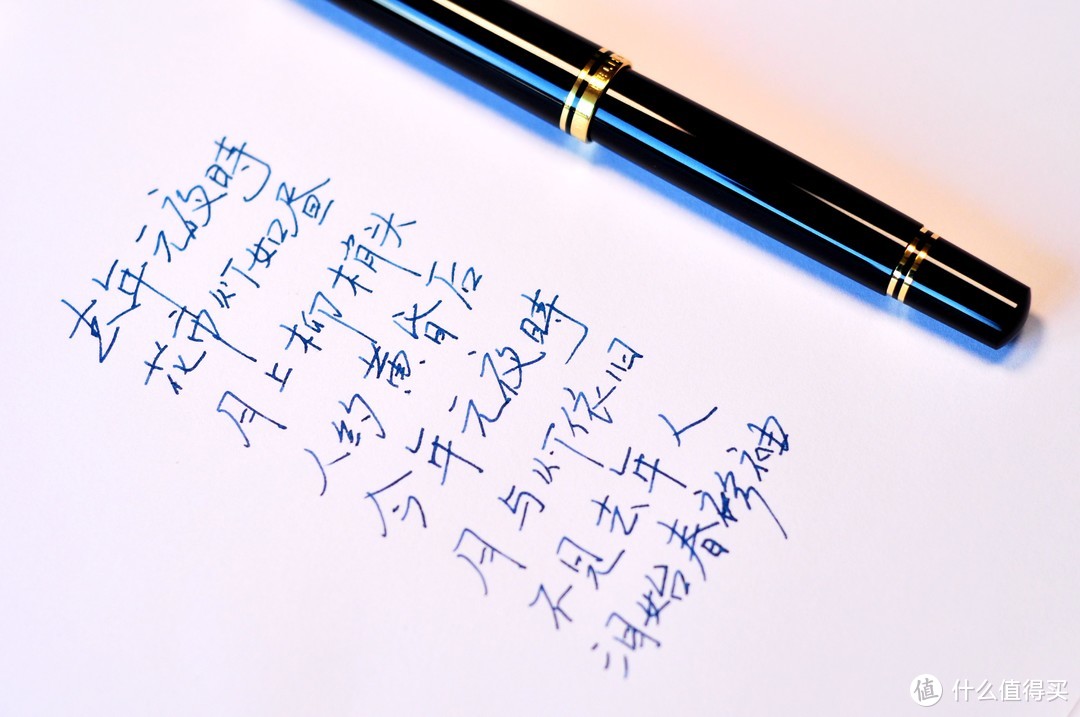 去年元夜時
花市灯如昼
月上柳梢头
人约黄昏后
今年元夜時
月与灯依旧
不见去年人
泪始春衫袖
值 什么值得买